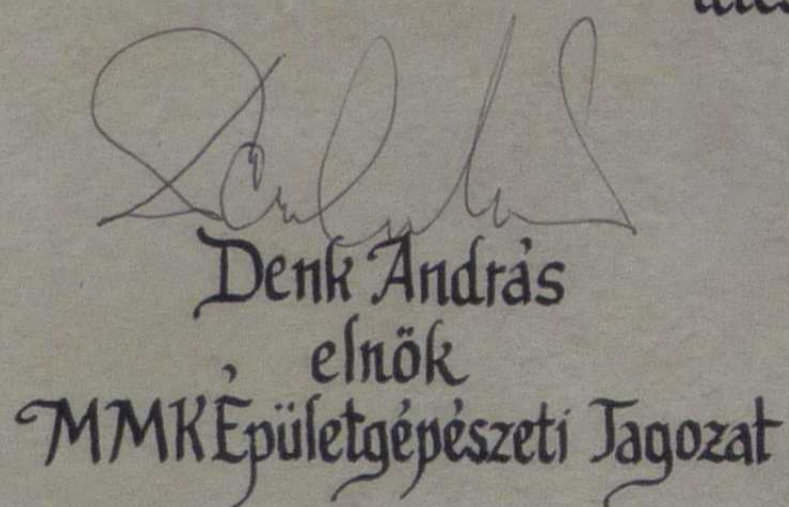 Denk András
elnök
MMK Épületgépészeti Tagozat